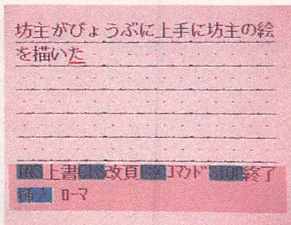 坊主がびょうぶに上手に坊主の絵
を描いた
上書 改頁 ｺﾏﾝﾄﾞ 終了
挿入 ﾛｰﾏ